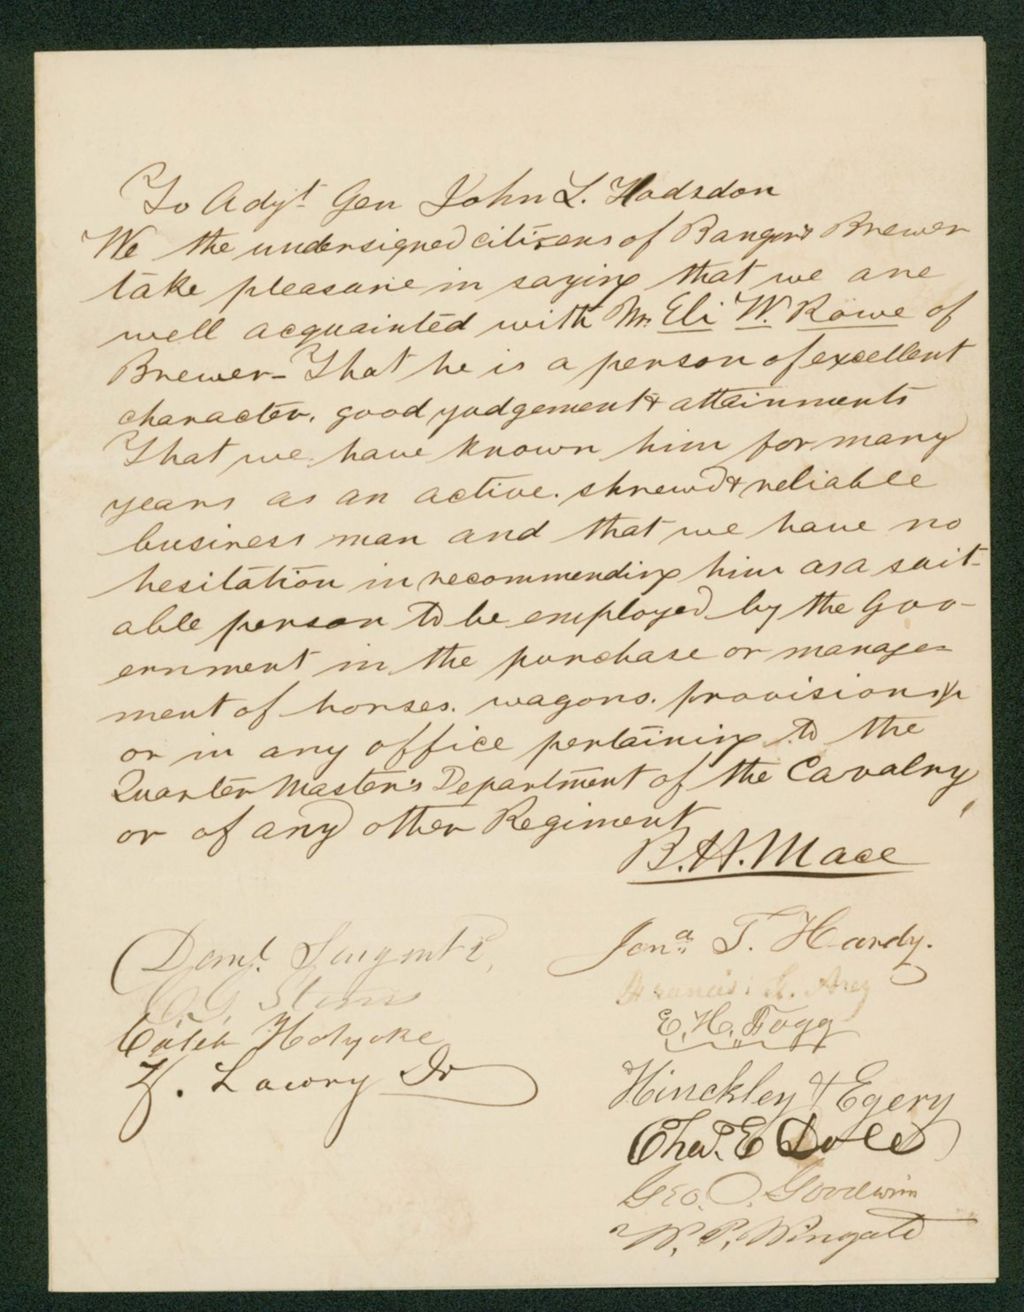 To Adjt Gen John L. Hodsdon
We the undersigned citizens of Bangor & Brewer
take pleasure in saying that we are
well acquainted with Mr. Eli W. Rowe of
Brewer - That he is a person of excellent
character, good judgement & attainments
That we have known him for many
years as an active, shrewd & reliable
business man and that we have no
hesitation in recommending him as a suit-
able person to be employed by the Gov-
ernment in the purchase or manage-
ment of horses, wagons, provisions &c
or in any office pertaining to the
Quarter Master's Department of the Cavalry
or of any other Regiment
B. H. Mace
Danl. Sargent
Caleb Holyoke
Lowry Dr
Jona. T. Hardy.
Francis Arey
E. H. Fogg
Hinckley & Egery
Chas. E Dole
Geo. O. Goodwin
W. P. Wingate